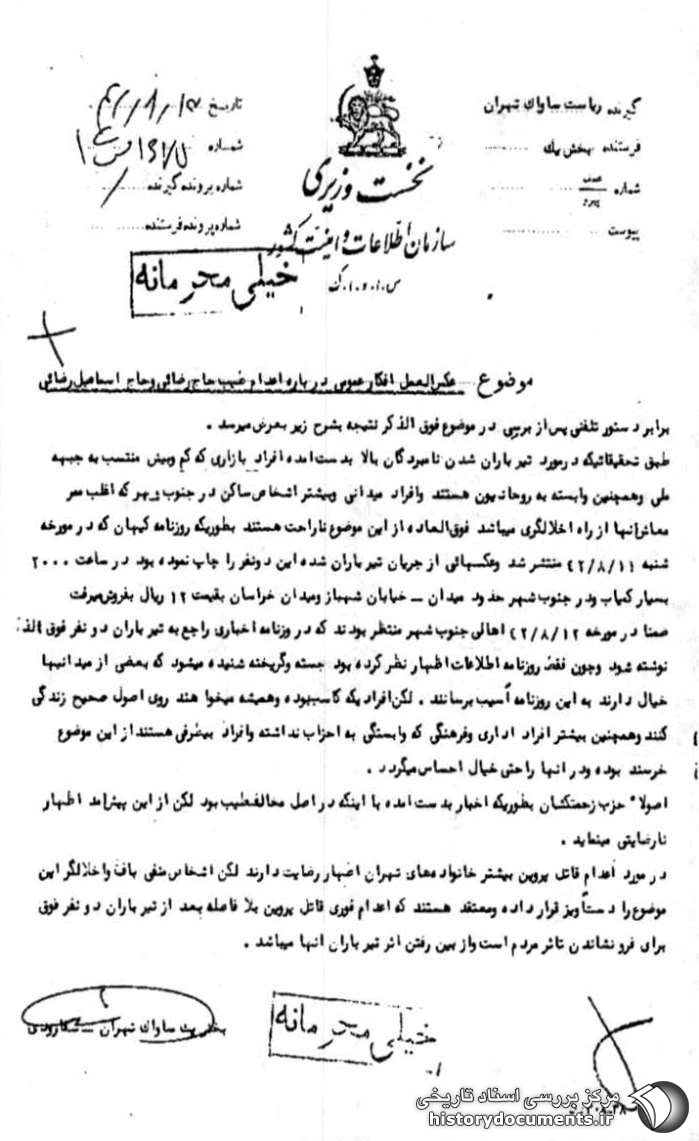 گیرنده ریاست ساواک تهران
فرستنده بخش یک
شماره
پیوست
نخست وزیری
سازمان اطلاعات و امنیت کشور
س.ا.و.ا.ک
تاریخ ۴۲/۸/۱۳
شماره
شماره پرونده گیرنده
شماره پرونده فرستنده
خیلی محرمانه
موضوع عکس‌العمل افکار عمومی درباره اعدام طیب حاج رضائی و حاج اسماعیل رضائی
برابر دستور تلفنی پس از بررسی در موضوع فوق الذکر نتیجه بشرح زیر بعرض میرسد .
طبق تحقیقاتیکه در مورد تیر باران شدن نامبردگان بالا بدست امده افراد بازاری که کم وبیش منتسب به جبهه
ملی وهمچنین وابسته به روحانیون هستند وافراد میدانی وبیشتر اشخاص ساکن در جنوب شهر که اغلب ممر
معاش انها از راه اخلالگری میباشد فوق‌العاده از این موضوع ناراحت هستند بطوریکه روزنامه کیهان که در مورخه
شنبه ۴۲/۸/۱۱ منتشر شد وعکسهائی از جریان تیر باران شده این دونفر را چاپ نموده بود در ساعت ۲۰۰۰
بسیار کمیاب ودر جنوب شهر حدود میدان – خیابان شهباز ومیدان خراسان بقیمت ۱۲ ریال بفروش میرفت
ضمنا در مورخه ۴۲/۸/۱۲ اهالی جنوب شهر منتظر بودند که در وزنامه اخباری راجع به تیر باران دو نفر فوق الذ
نوشته شود وچون فقط روزنامه اطلاعات اظهار نظر کرده بود جسته وگریخته شنیده میشود که بعضی از میدانیها
خیال دارند به این روزنامه آسیب برسانند . لکن افراد یکه کاسب بوده وهمیشه میخوا هند روی اصول صحیح زندگی
کنند وهمچنین بیشتر افراد اداری وفرهنگی که وابستگی به احزاب نداشته وافراد بیطرفی هستند از این موضوع
خرسند بوده ودر انها راحتی خیال احساس میگردد .
اصولا حزب زحمتکشان بطوریکه اخبار بدست امده با اینکه در اصل مخالف طیب بود لکن از این پیش‌امد اظهار
نارضایتی مینماید .
در مورد اعدام قاتل پروین بیشتر خانواده‌های تهران اظهار رضایت دارند لکن اشخاص منفی باف واخلالگر این
موضوع را دستآویز قرار داده ومعتقد هستند که اعدام فوری قاتل پروین بلا فاصله بعد از تیر باران دو نفر فوق
برای فرو نشاندن تاثر مردم است واز بین رفتن اثر تیر باران انها میباشد .
بخش یک ساواک تهران –
خیلی محرمانه
مرکز بررسی اسناد تاریخی
historydocuments.ir